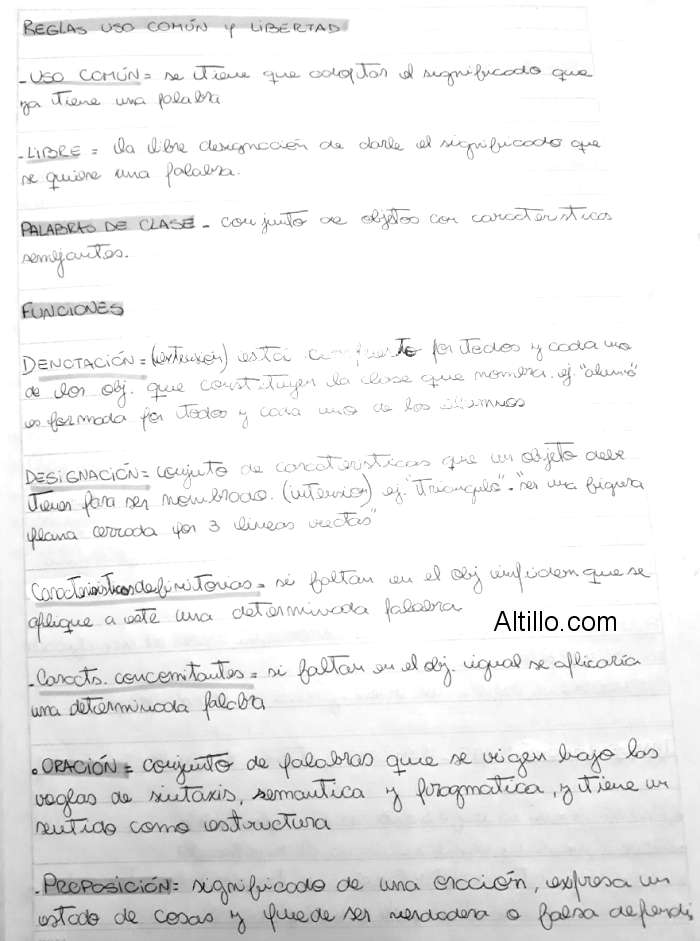 REGLAS USO COMÚN Y LIBERTAD
- USO COMÚN = se tiene que adoptar el significado que
ya tiene una palabra
- LIBRE = la libre designación de darle el significado que
se quiere una palabra.
PALABRAS DE CLASE - conjunto de objetos con caracteristicas
semejantes.
FUNCIONES
DENOTACIÓN = (extensión) está compuesto por todos y cada uno
de los obj. que constituyen la clase que nombra. ej "alumno"
es formada por todos y cada uno de los
DESIGNACIÓN = conjunto de caracteristicas que un objeto debe
tener para ser nombrado. (intension) ej "triangulo" - "ser una figura
plana cerrada por 3 lineas rectas"
Caracteristicas definitorias = si faltan en el obj impiden que se
aplique a este una determinada palabra
Altillo.com
- Caracts. concomitantes = si faltan en el obj. igual se aplicaria
una determinada palabra
• ORACIÓN = conjunto de palabras que se rigen bajo las
reglas de sintaxis, semantica y pragmatica, y tiene un
sentido como estructura
- PROPOSICIÓN = significado de una oración, expresa un
estado de cosas y puede ser verdadera o falsa dependi